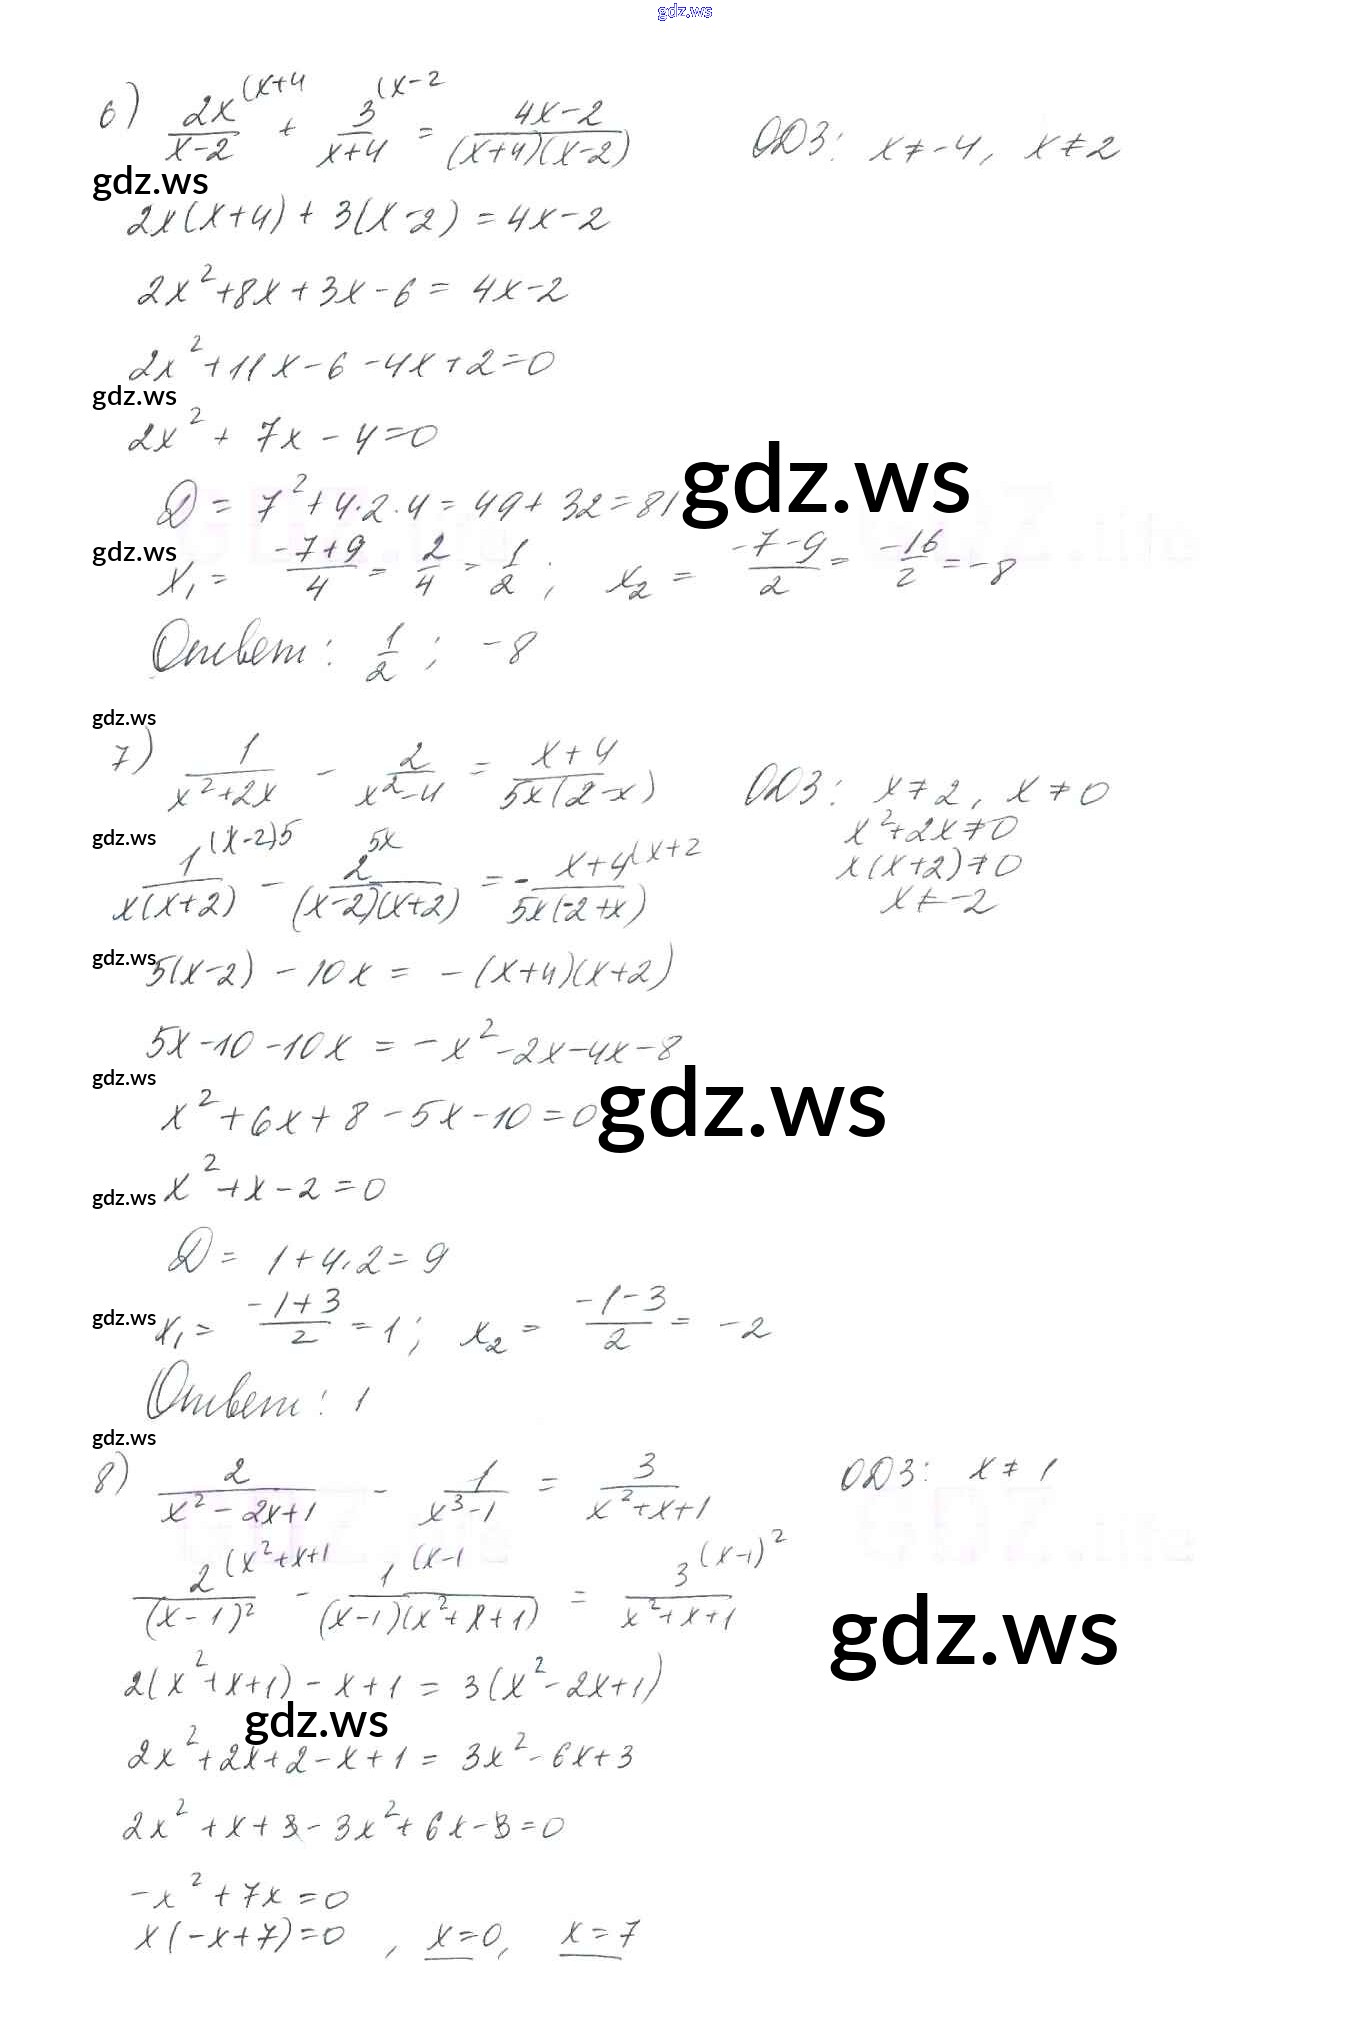 gdz.ws
6) 2x^(x+4 / (x-2) + 3^(x-2 / (x+4) = (4x-2) / ((x+4)(x-2)) ОДЗ: x≠-4, x≠2
gdz.ws
2x(x+4) + 3(x-2) = 4x-2
2x²+8x+3x-6 = 4x-2
2x²+11x-6-4x+2=0
gdz.ws
2x² + 7x - 4=0
D = 7²+4·2·4=49+32=81
gdz.ws
gdz.ws
x₁ = (-7+9)/4 = 2/4 = 1/2 ; x₂ = (-7-9)/2 = -16/2 = -8
Ответ: 1/2 ; -8
gdz.ws
7) 1/(x²+2x) - 2/(x²-4) = (x+4)/(5x(2-x)) ОДЗ: x≠2, x≠0
x²+2x≠0
gdz.ws
x(x+2)≠0
1^(x-2)5 / (x(x+2)) - 2^5x / ((x-2)(x+2)) = - x+4^(x+2 / (5x(-2+x)) x≠-2
gdz.ws
5(x-2) - 10x = -(x+4)(x+2)
5x-10-10x = -x²-2x-4x-8
gdz.ws
x²+6x+8-5x-10=0
gdz.ws
gdz.ws
x²+x-2=0
D = 1+4·2=9
gdz.ws
x₁ = (-1+3)/2 =1; x₂ = (-1-3)/2 = -2
Ответ: 1
gdz.ws
8) 2/(x²-2x+1) - 1/(x³-1) = 3/(x²+x+1) ОДЗ: x≠1
2^(x²+x+1 / (x-1)² - 1^(x-1 / ((x-1)(x²+x+1)) = 3^(x-1)² / (x²+x+1)
gdz.ws
2(x²+x+1) - x+1 = 3(x²-2x+1)
gdz.ws
2x²+2x+2-x+1 = 3x²-6x+3
2x²+x+3-3x²+6x-3=0
-x²+7x=0
x(-x+7)=0 , x=0, x=7